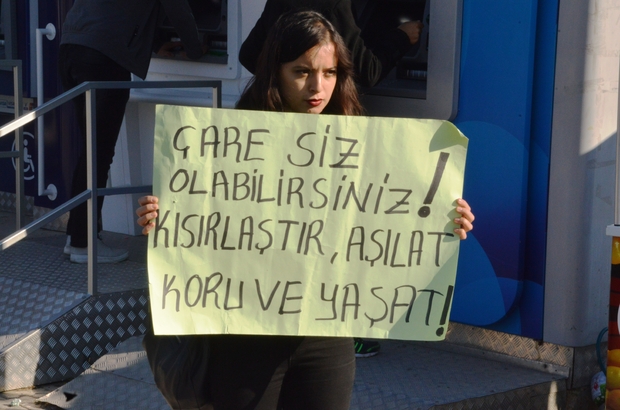 ÇARE SİZ
OLABİLİRSİNİZ!
KISIRLAŞTIR, AŞILAT
KORU VE YAŞAT!